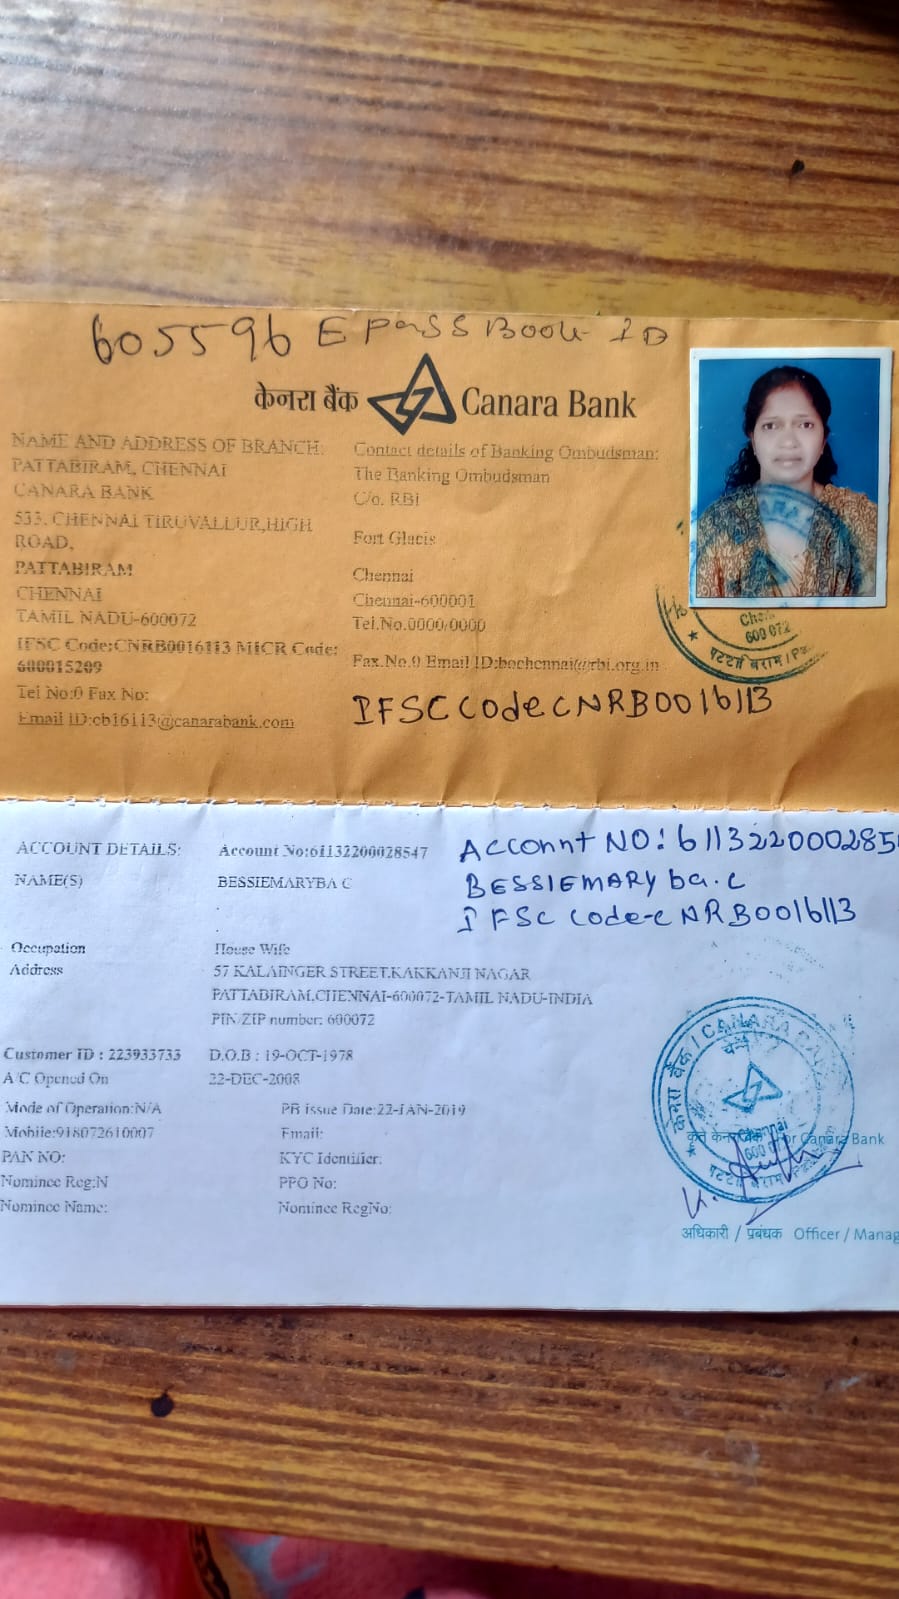 605596 E Pass Book ID
केनरा बैंक Canara Bank
NAME AND ADDRESS OF BRANCH:
PATTABIRAM, CHENNAI
CANARA BANK
533, CHENNAI TIRUVALLUR,HIGH
ROAD,
PATTABIRAM
CHENNAI
TAMIL NADU-600072
IFSC Code:CNRB0016113 MICR Code:
600015209
Tel No:0 Fax No:
Email ID:cb16113@canarabank.com
Contact details of Banking Ombudsman:
The Banking Ombudsman
C/o. RBI
Fort Glacis
Chennai
Chennai-600001
Tel.No.0000/0000
Fax.No.0 Email ID:bochennai@rbi.org.in
IFSC Code CNRB0016113
600 072
ACCOUNT DETAILS: Account No:61132200028547
NAME(S) BESSIEMARYBA C
Account NO: 6113220002854
BESSIEMARY ba. c
IFSC code-CNRB0016113
Occupation House Wife
Address 57 KALAINGER STREET,KAKKANJI NAGAR
PATTABIRAM,CHENNAI-600072-TAMIL NADU-INDIA
PIN/ZIP number: 600072
Customer ID : 223933733 D.O.B : 19-OCT-1978
A/C Opened On 22-DEC-2008
Mode of Operation:N/A PB Issue Date:22-JAN-2019
Mobile:918072610007 Email:
PAN NO: KYC Identifier:
Nominee Reg:N PPO No:
Nominee Name: Nominee RegNo:
केनरा बैंक / CANARA
Chennai
कृते केनरा बैंक For Canara Bank
अधिकारी / प्रबंधक Officer / Manag